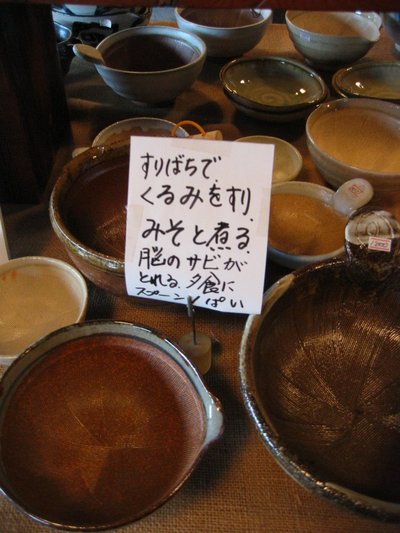 すりばちで、
くるみをすり、
みそと煮る。
脳のサビが
とれる、夕食に
スプーン一ぱい